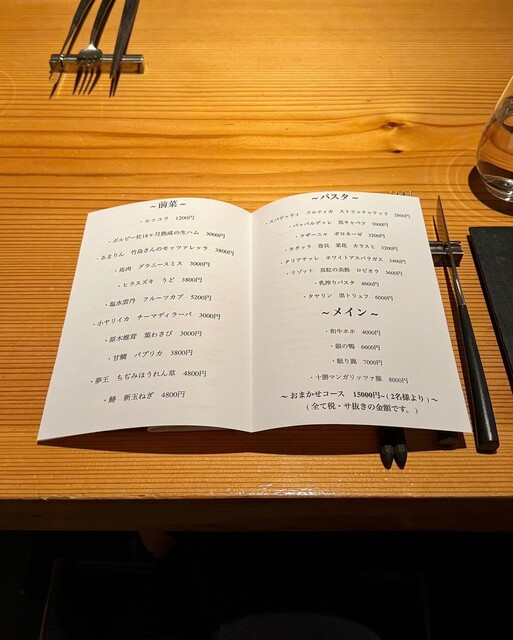 ～前菜～
・ルッコラ 1200円
・ボルピー社18ヶ月熟成の生ハム 3000円
・あまりん 竹島さんのモッツアレッラ 3800円
・馬肉 グラニースミス 3000円
・ヒラスズキ うど 3800円
・塩水雲丹 フルーツカブ 5200円
・小ヤリイカ チーマディラーパ 3000円
・原木椎茸 葉わさび 3000円
・甘鯛 パプリカ 3800円
・夢王 ちぢみほうれん草 4800円
・鰆 新玉ねぎ 4800円
～パスタ～
・スパゲッティ フルティカ ストラッチャテッラ 2800円
・パッパルデッレ 黒キャベツ 3000円
・ラザーニャ ボロネーゼ 3200円
・キタッラ 巻貝 菜花 カラスミ 3200円
・タリアテッレ ホワイトアスパラガス 3400円
・リゾット 真紅の美鈴 ロビオラ 3600円
・乳搾りパスタ 4600円
・タヤリン 黒トリュフ 6000円
～メイン～
・和牛ホホ 4000円
・銀の鴨 6600円
・蝦夷鹿 7000円
・十勝マンガリッツァ豚 8000円
～おまかせコース 15000円~(2名様より)～
(全て税・サ抜きの金額です。)